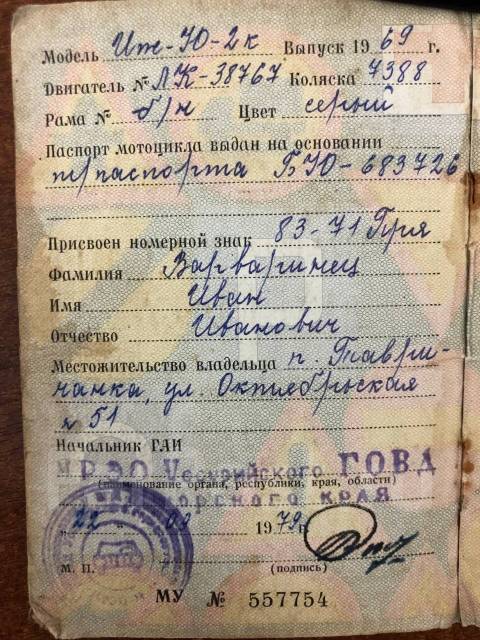 Модель Иж-Ю-2к Выпуск 1969 г.
Двигатель № ЛК-38767 Коляска 7388
Рама № б/н Цвет серый
Паспорт мотоцикла выдан на основании
т/паспорта БЮ-683726
Присвоен номерной знак 83-71 Пря
Фамилия Варваринец
Имя Иван
Отчество Иванович
Местожительство владельца п. Таври-
чанка, ул. Октябрьская
51
Начальник ГАИ
РЭО Уссурийского ГОВД
(наименование органа, республики, края, области)
Приморского края
22 1979 г.
М. П. (подпись)
МУ № 557754